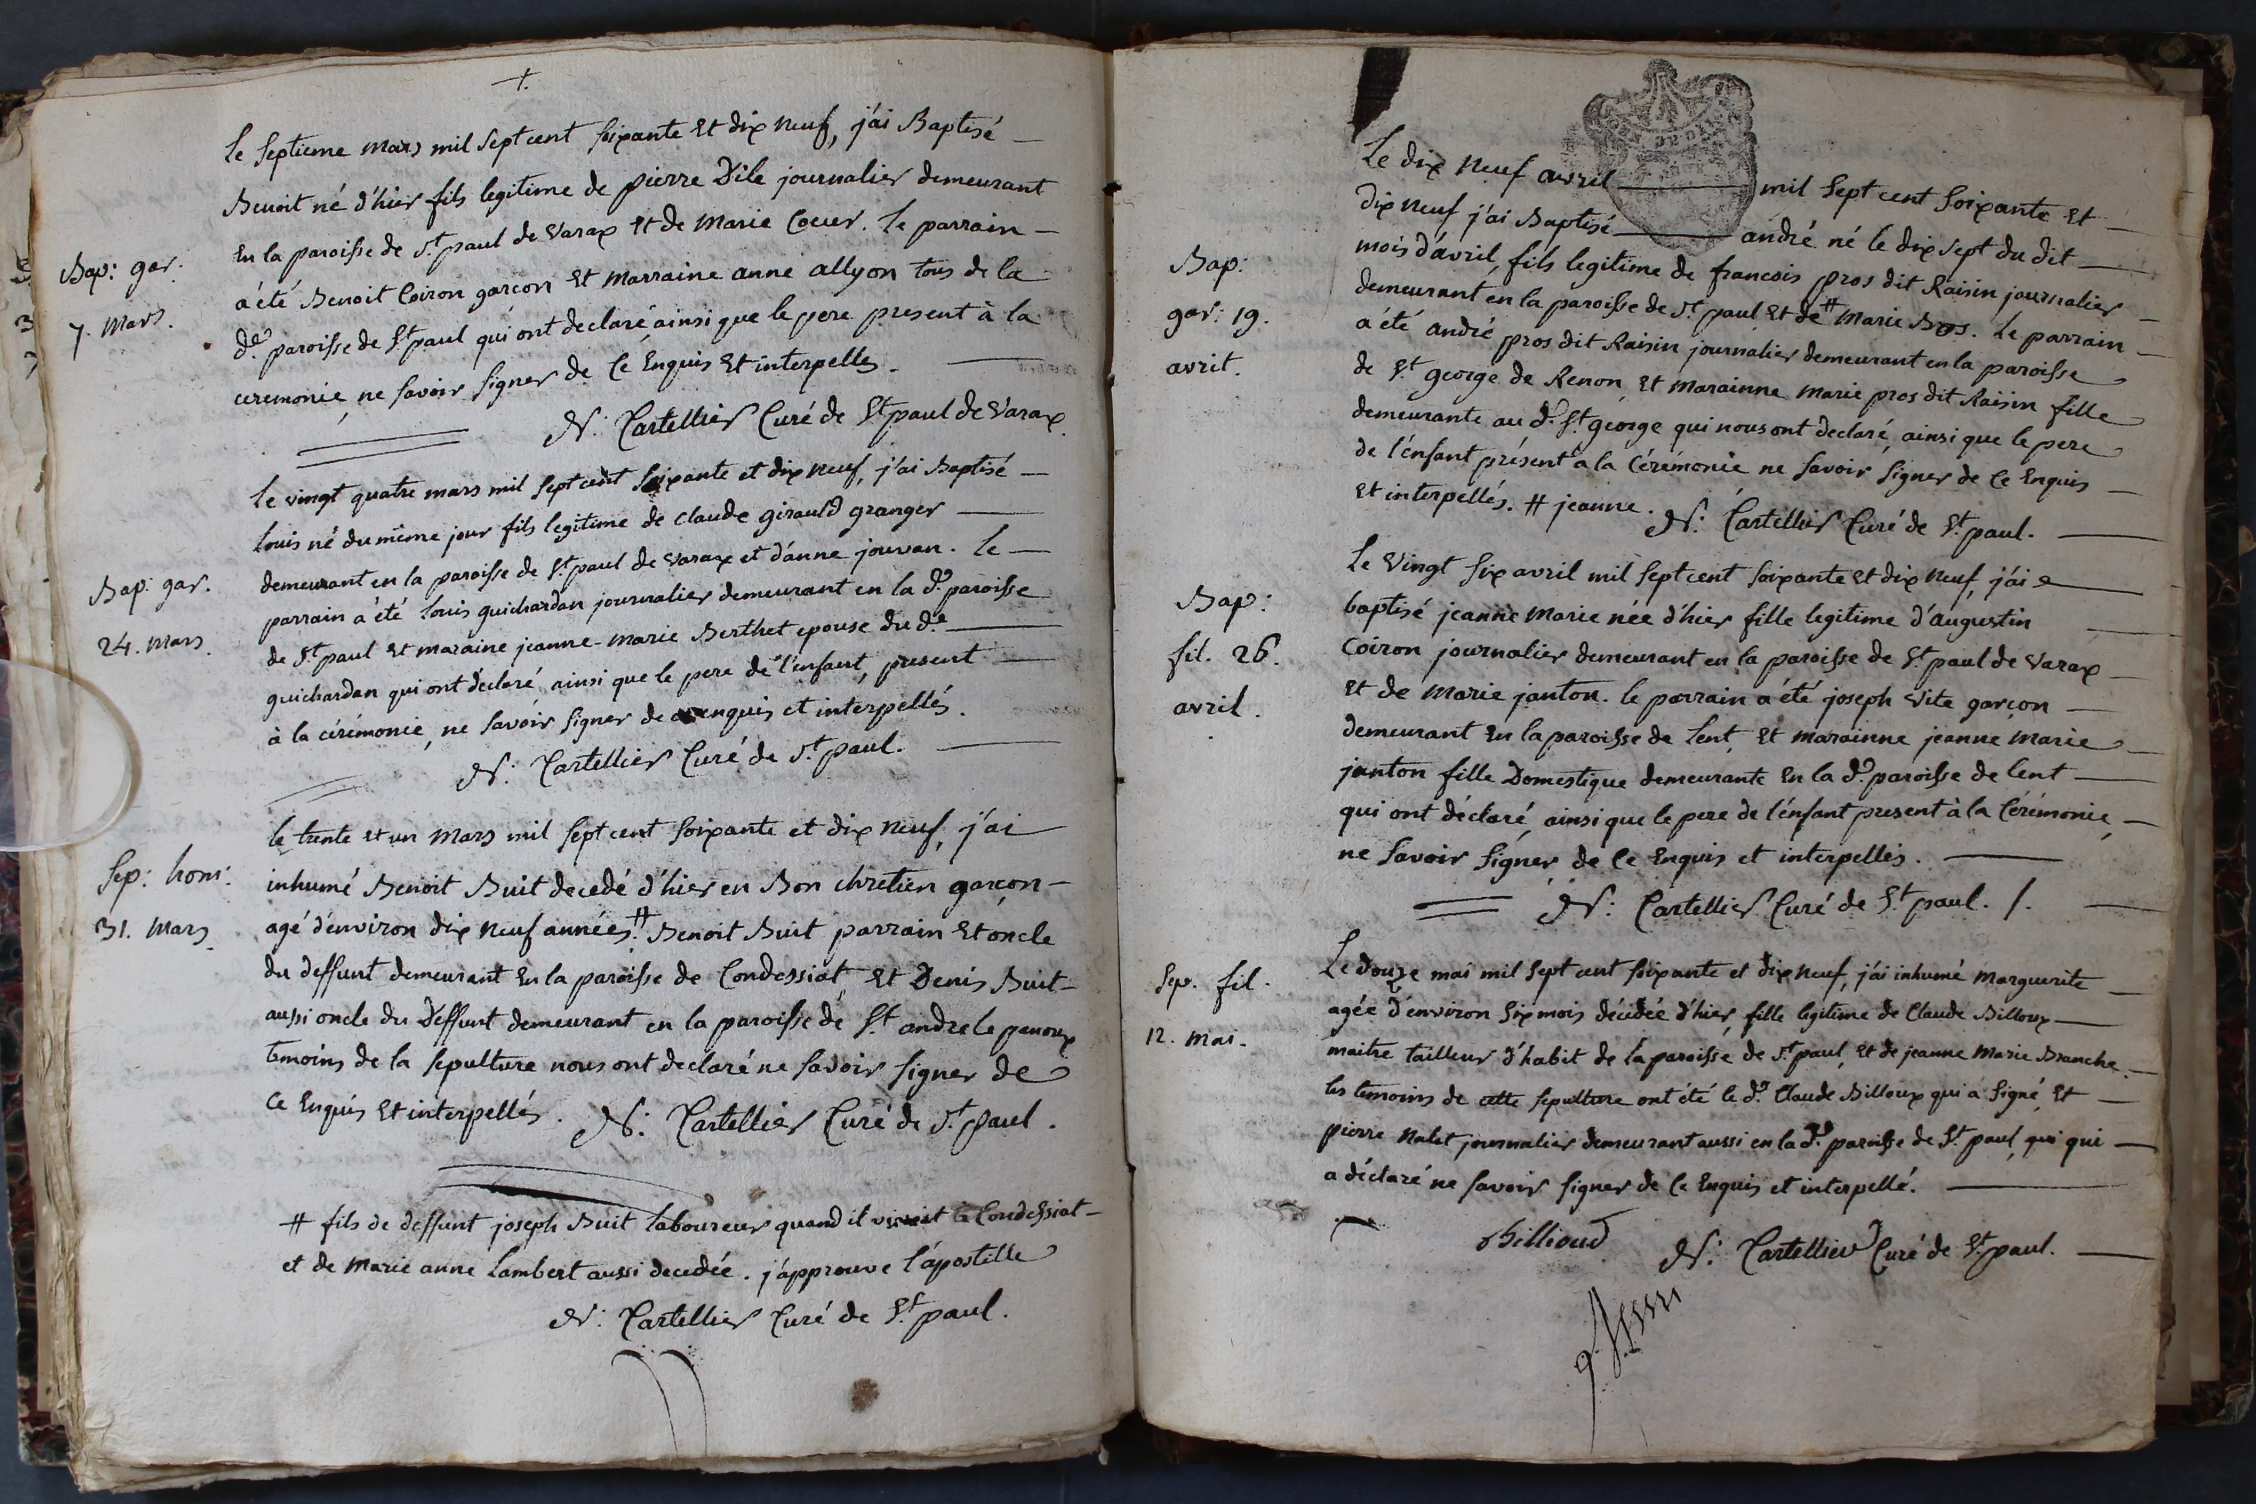 +.
Le septieme mars mil sept cent soixante et dix neuf, j'ai Baptisé
Bap: gar.
7. Mars.
Benoit né d'hier fils legitime de pierre Vite journalier demeurant
en la paroisse de St. paul de Varax et de Marie Coeur. Le parrain
a été Benoit Coiron garcon et Marraine anne allyon tous de la
de. paroisse de St. paul qui ont declaré ainsi que le pere present à la
ceremonie, ne savoir signer de ce enquis et interpellés.
N: Cartellier Curé de St. paul de Varax.
Le vingt quatre mars mil sept cent soixante et dix neuf, j'ai Baptisé
Bap: gar.
24. mars.
Louis né du même jour fils legitime de claude girauld granger
demeurant en la paroisse de St. paul de varax et d'anne jouvan. Le
parrain a été Louis guichardan journalier demeurant en la de. paroisse
de St. paul et maraine jeanne-marie Berthet epouse du de.
guichardan qui ont déclaré ainsi que le pere de l'enfant, present
à la cérémonie, ne savoir signer de enquis et interpellés.
N: Cartellier Curé de St. paul.
Sep: hom:
31. Mars
le trente et un Mars mil sept cent soixante et dix neuf, j'ai
inhumé Benoit Buit decedé d'hier en Bon chretien garcon
agé d'environ dix neuf années.# Benoit Buit parrain et oncle
du deffunt demeurant en la paroisse de Condessiat, et Denis Buit
aussi oncle du Deffunt demeurant en la paroisse de St. andre le panoux
temoins de la sepulture nous ont declaré ne savoir signer de
ce enquis et interpellés. N: Cartellier Curé de St. paul.
# fils de deffunt joseph Buit laboureur quand il vivoit à Condessiat
et de Marie anne Lambert aussi decedée. j'approuve l'apostille
N: Cartellier Curé de St. paul.
Le dix neuf avril mil sept cent soixante et
Bap:
gar: 19.
avril.
dix neuf j'ai Baptisé andré né le dix sept du dit
mois d'avril, fils legitime de francois pros dit Raisin journalier
demeurant en la paroisse de St. paul et de # Marie Bos. Le parrain
a été andré pros dit Raisin journalier demeurant en la paroisse
de St. george de Renon, et Marainne Marie pros dit Raisin fille
demeurante au de. St. george qui nous ont declaré ainsi que le pere
de l'énfant présent à la Cérémonie ne savoir signer de ce enquis
et interpellés. # jeanne.
N: Cartellier Curé de St. paul.
Bap:
fil. 26.
avril.
Le Vingt six avril mil sept cent soixante et dix neuf, j'ai
baptisé jeanne Marie née d'hier fille legitime d'augustin
Coiron journalier demeurant en la paroisse de St. paul de Varax
et de Marie janton. le parrain a été joseph Vite garçon
demeurant en la paroisse de Lent, et marainne jeanne Marie
janton fille Domestique demeurante en la de. paroisse de Lent
qui ont déclaré ainsi que le pere de l'énfant present à la Cérémonie,
ne savoir signer de ce enquis et interpellés.
N: Cartellier Curé de St. paul. /.
Sep. fil.
12. Mai.
Le douze mai mil sept cent soixante et dix neuf, j'ai inhumé Marguerite
agée d'environ six mois décédée d'hier, fille legitime de Claude Billoux
maitre tailleur d'habit de la paroisse de St. paul, et de jeanne Marie Branche.
les temoins de cette sepulture ont été le de. Claude Billoux qui a signé, et
pierre Nalet journalier demeurant aussi en la de. paroisse de St. paul, qui qui
a déclaré ne savoir signer de ce enquis et interpellé.
Billioud N: Cartellier Curé de St. paul.